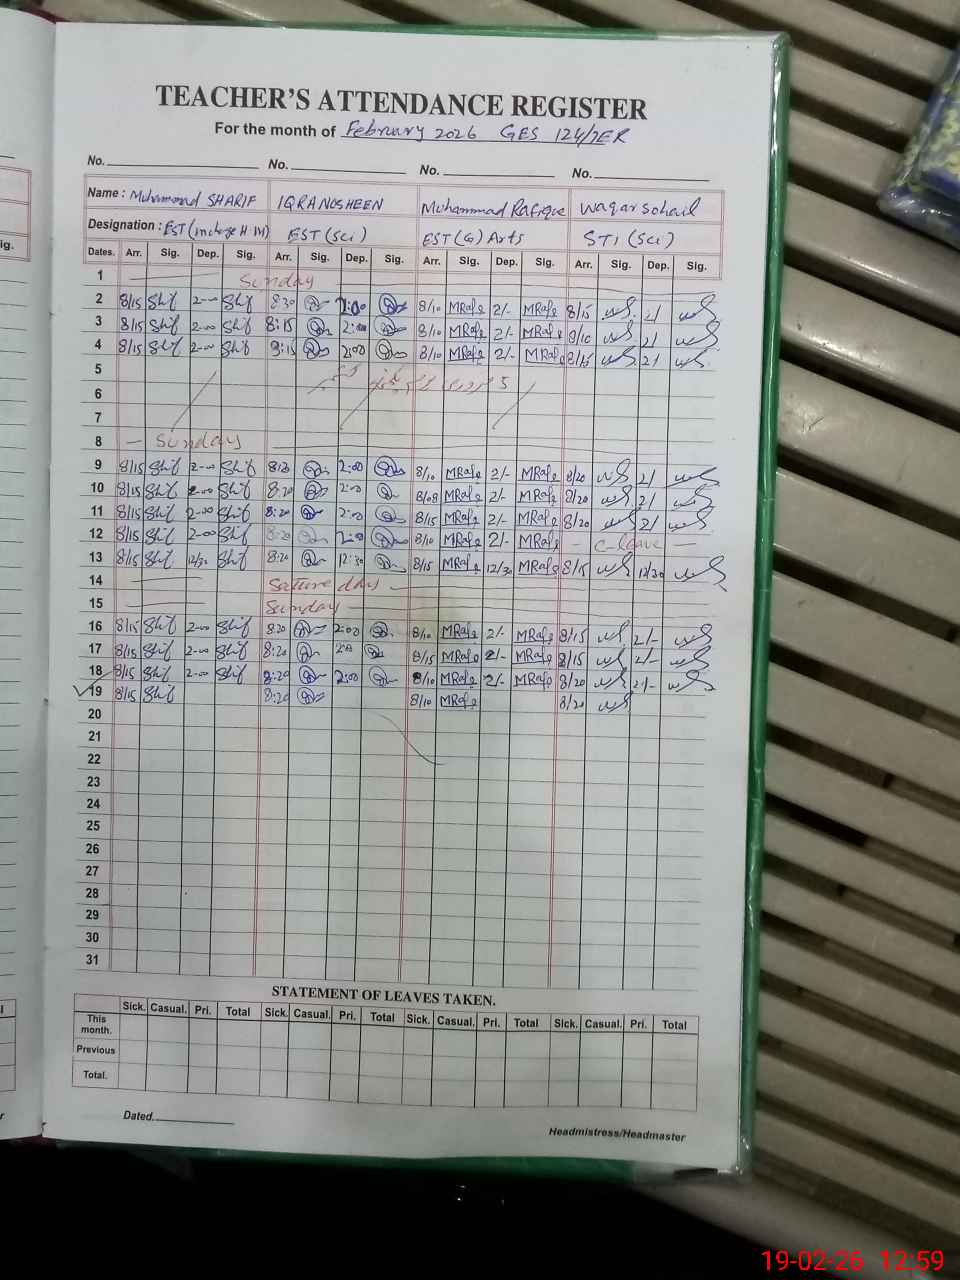 TEACHER'S ATTENDANCE REGISTER
For the month of February 2026 GES 124/7ER
No. No. No. No.
Name : Muhammad SHARIF IQRA NOSHEEN Muhammad Rafique Waqar Sohail
Designation : EST (Incharge H.M) EST (Sci) EST (G) Arts STI (Sci)
Dates. Arr. Sig. Dep. Sig. Arr. Sig. Dep. Sig. Arr. Sig. Dep. Sig. Arr. Sig. Dep. Sig.
1 Sunday
2 8/15 Shif 2-00 Shif 8:30 2:00 8/10 MRafq 2/- MRafq 8/15 2/
3 8/15 Shif 2-00 Shif 8:15 2:00 8/10 MRafq 2/- MRafq 8/10 2/
4 8/15 Shif 2-00 Shif 2:00 8/10 MRafq 2/- MRafq 8/15 2/
5 5
6
7
8 Sunday
9 8/15 Shif 2-00 Shif 2:00 8/10 MRafq 2/- MRafq 8/20 2/
10 8/15 Shif 2-00 Shif 8:20 2:00 8/08 MRafq 2/- MRafq 8/20 2/
11 8/15 Shif 2-00 Shif 8:20 2:00 8/15 MRafq 2/- MRafq 8/20 2/
12 8/15 Shif 2-00 Shif 8:20 2:00 8/10 MRafq 2/- MRafq - C-leave -
13 8/15 Shif 12/30 Shif 8:20 12:30 8/15 MRafq 12/30 MRafq 8/15 12/30
14
15 Sunday
16 8/15 Shif 2-00 Shif 8:20 2:00 8/10 MRafq 2/- MRafq 8/15 2/-
17 8/15 Shif 2-00 Shif 8:20 8/15 MRafq 2/- MRafq 8/15 2/-
18 8/15 Shif 2-00 Shif 8:20 2:00 8/10 MRafq 2/- MRafq 8/20 2/-
19 8/15 Shif 8:20 8/10 MRafq 8/20
20
21
22
23
24
25
26
27
28
29
30
31
STATEMENT OF LEAVES TAKEN.
Sick. Casual. Pri. Total Sick. Casual. Pri. Total Sick. Casual. Pri. Total Sick. Casual. Pri. Total
This month.
Previous
Total.
Dated.
Headmistress/Headmaster
19-02-26 12:59